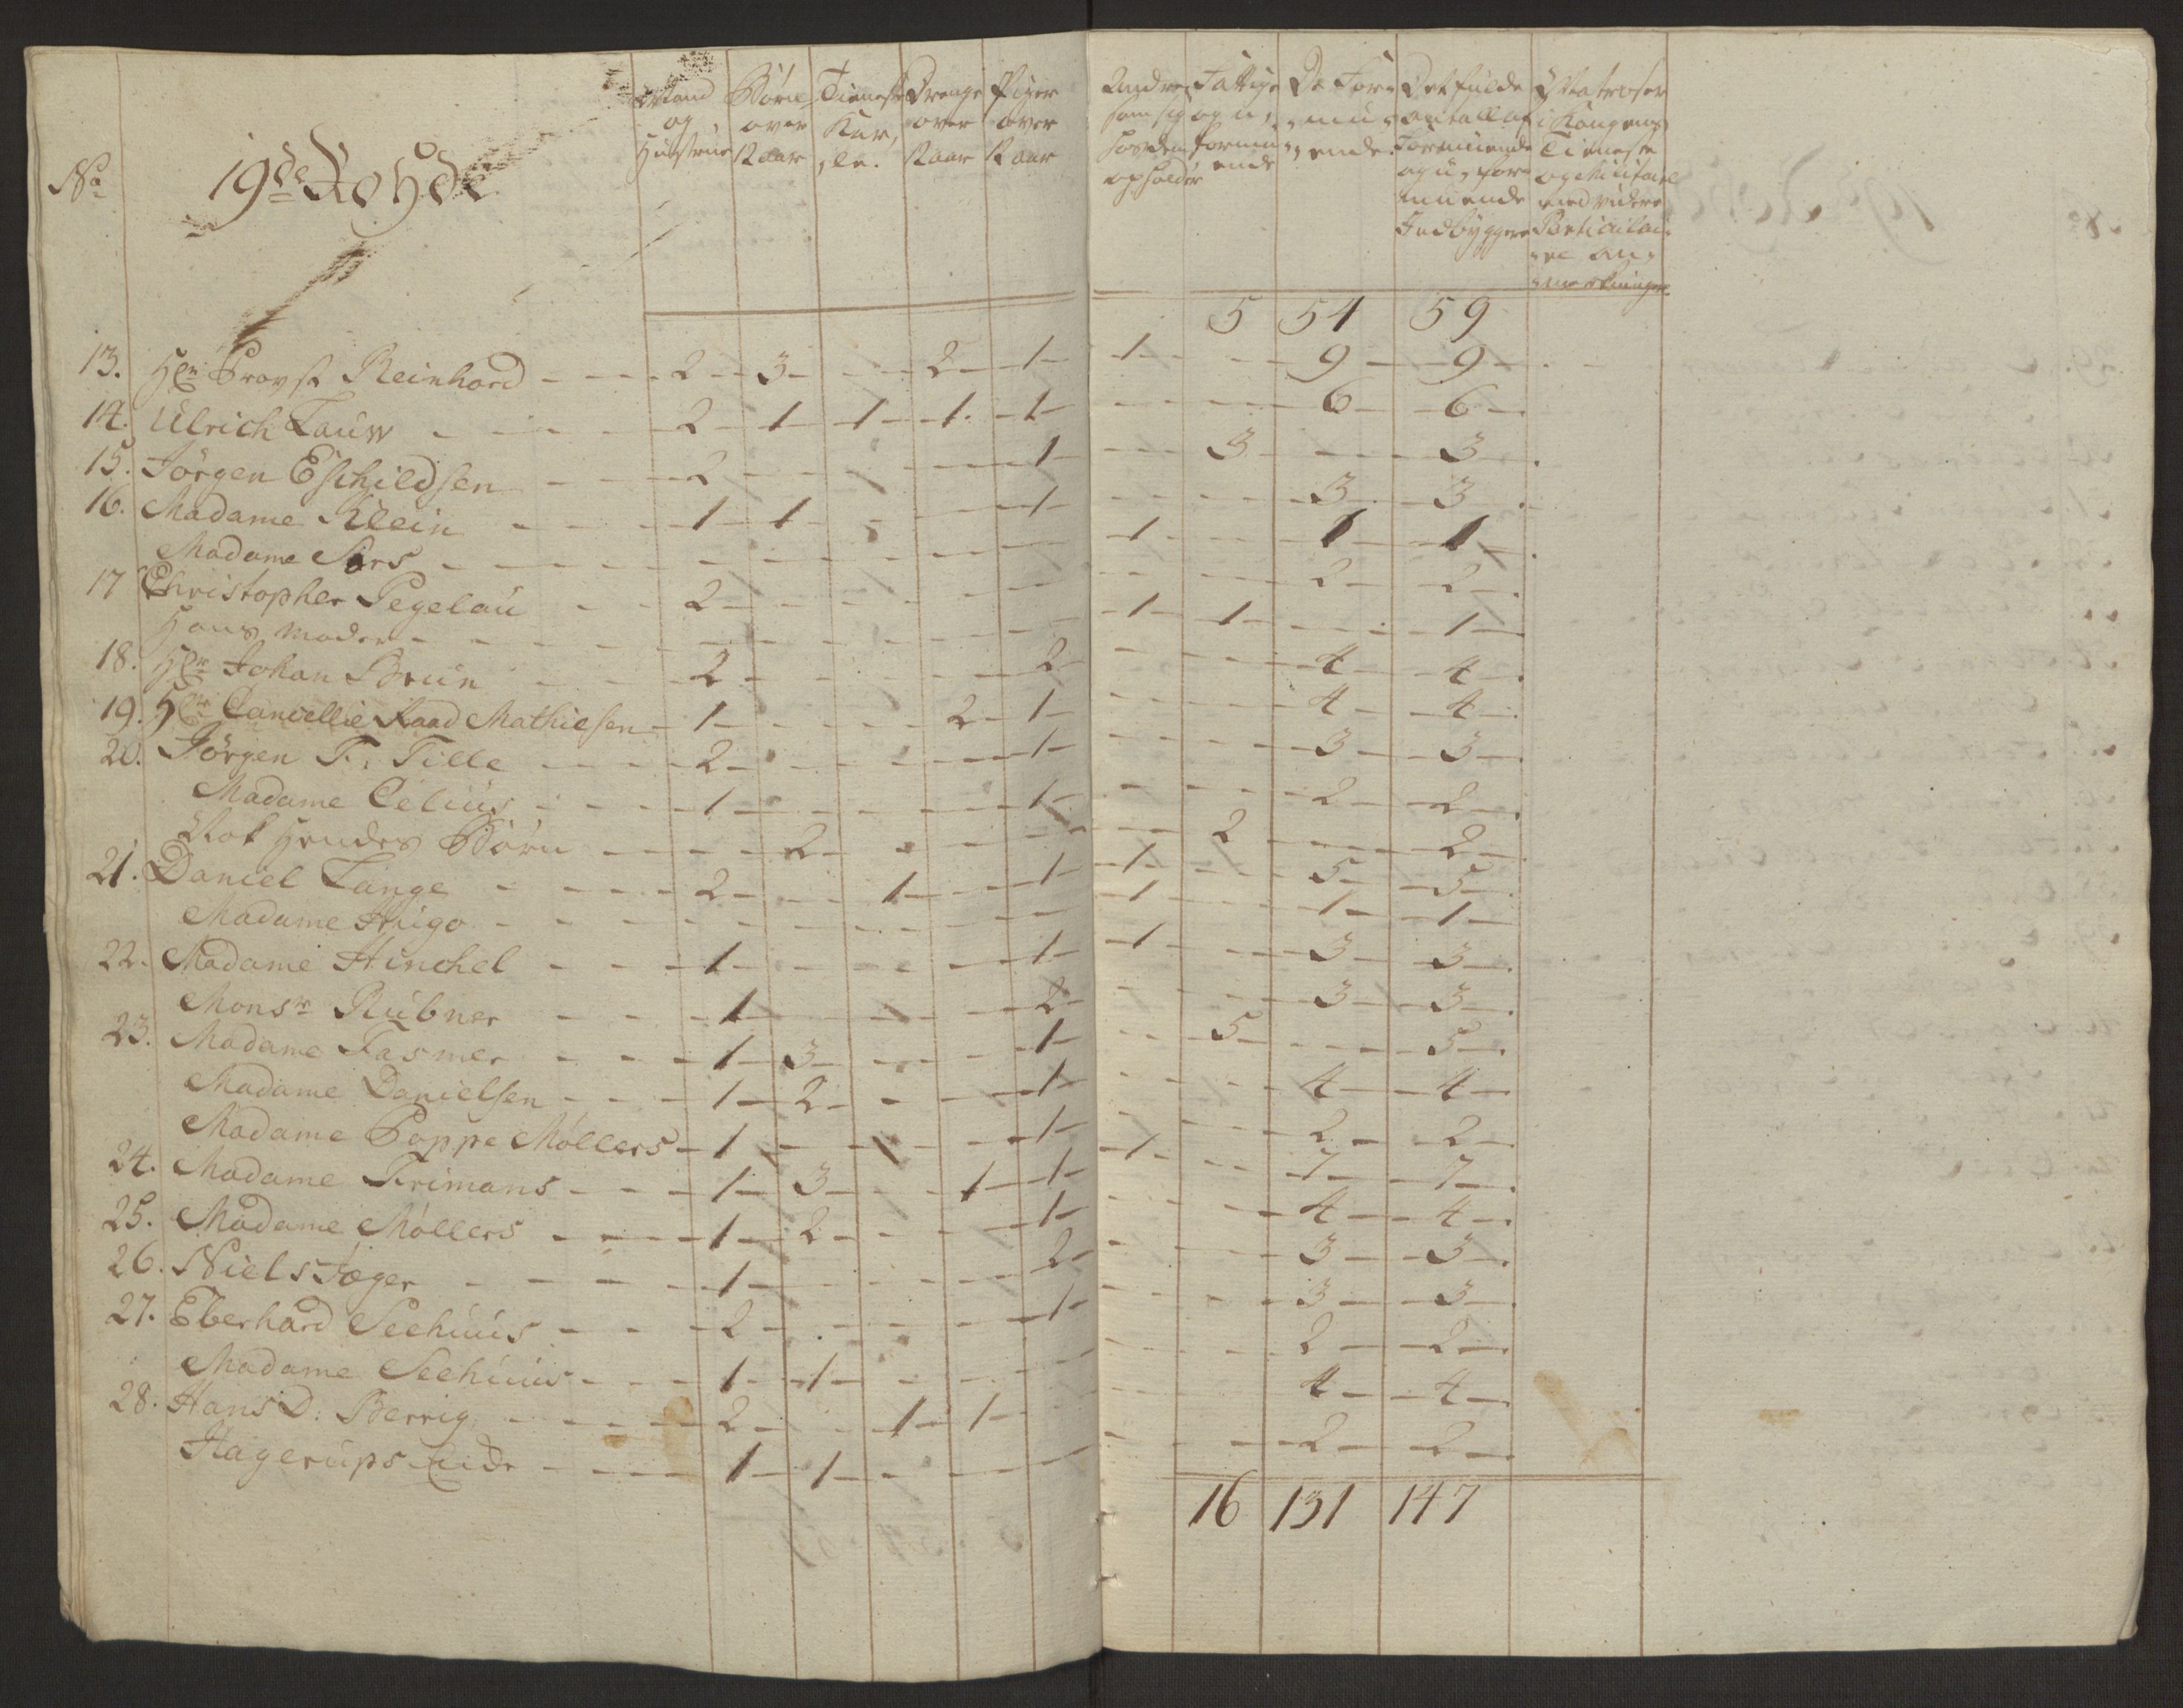 No 19de Rohde
Mand og Hustrue
Børn over 12 aar
Tieneste Kar, le.
Drenge over 12 aar
Piger over 12 aar
Andre som sig hos dem opholder
Fattige og u, formu ende
De For, mu, ende.
Det fulde antall af Formuende og u, for muende Indbyggere
Matroser i Kongens Tieneste og Militaire med videre Particulai, re An, merkninger
5 51 59
13. Hr Provst Reinhard - 2 - 3 - - 2 - 1 - 1 - - 9 - 9
14. Ulrich Lauw - 2 - 1 - 1 - 1 - 1 - - - 6 - 6
15. Jörgen Eschildsen - 2 - - - - 1 - - 3 - - 3
16. Madame Klein - 1 - 1 - - - 1 - - - 3 - 3
Madame Sørs - - - - - - 1 - - 1 - 1
17 Christopher Pegelau - 2 - - - - - - 2 - 2
Hans Moder - - - - - - 1 - 1 - - 1
18. Hr Johan Brun - 2 - - - - 2 - - - 4 - 4
19. Hr Cancellie Raad Mathiesen - 1 - - - 2 - 1 - - - 4 - 4
20. Jörgen F: Tille - 2 - - - - 1 - - - 3 - 3
Madame Celius - 1 - - - - 1 - - - 2 - 2
Nok Hendes Børn - - 2 - - - - - 2 - - 2
21. Daniel Lange - 2 - - 1 - - 1 - 1 - - 5 - 5
Madame Hugo - - - - - - 1 - - 1 - 1
22. Madame Hinchel - 1 - - - - 1 - 1 - - 3 - 3
Monsr Rubner - 1 - - - - 2 - - - 3 - 3
23. Madame Fasmer - 1 - 3 - - - 1 - - 5 - - 5
Madame Danielsen - 1 - 2 - - - 1 - - - 4 - 4
Madame Poppe Møllers - 1 - - - - 1 - - - 2 - 2
24. Madame Frimans - 1 - 3 - - 1 - 1 - 1 - - 7 - 7
25. Madame Møllers - 1 - 2 - - - 1 - - - 4 - 4
26. Niels Jæger - 1 - - - - 2 - - - 3 - 3
27. Eberhard Seehuus - 2 - - - - 1 - - - 3 - 3
Madame Seehuus - 1 - 1 - - - - - - 2 - 2
28. Hans D: Berrig - 2 - - 1 - 1 - - 4 - 4
Hagerups Enke - 1 - 1 - - - - - - 2 - 2
16 131 147